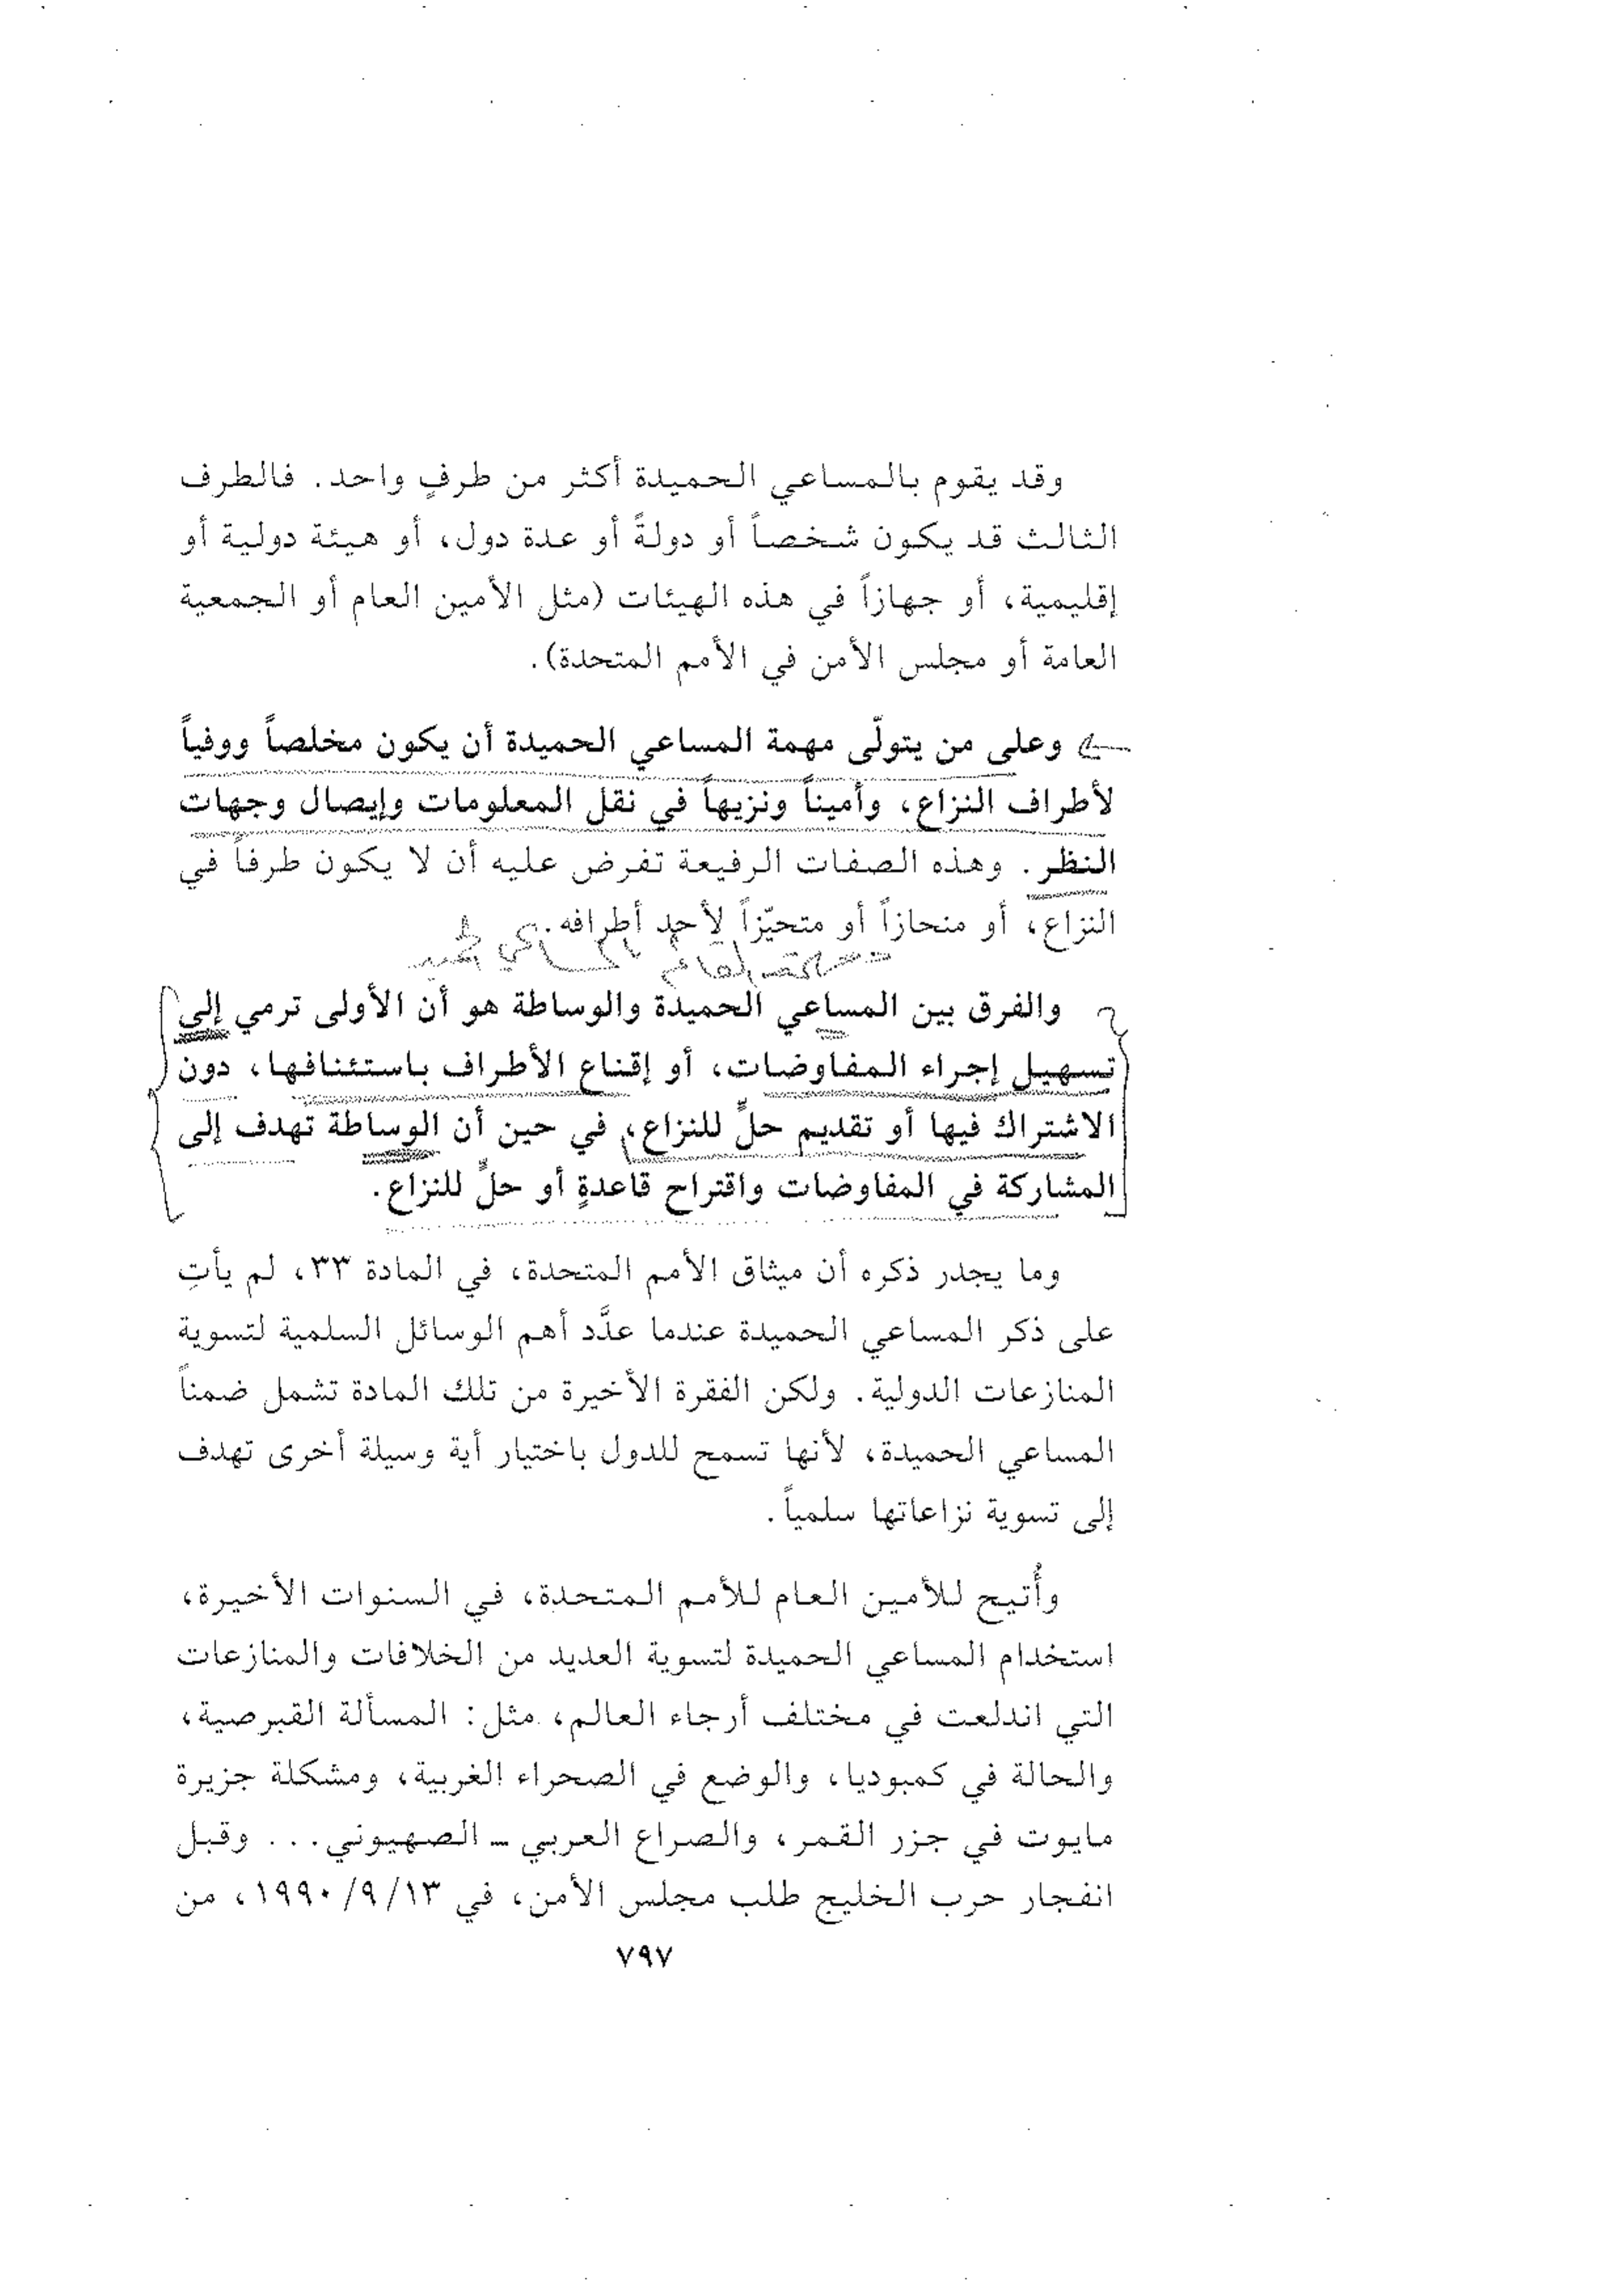 وقد يقوم بالمساعي الحميدة أكثر من طرفٍ واحد. فالطرف
الثالث قد يكون شخصاً أو دولةً أو عدة دول، أو هيئة دولية أو
إقليمية، أو جهازاً في هذه الهيئات (مثل الأمين العام أو الجمعية
العامة أو مجلس الأمن في الأمم المتحدة).
وعلى من يتولّى مهمة المساعي الحميدة أن يكون مخلصاً ووفياً
لأطراف النزاع، وأميناً ونزيهاً في نقل المعلومات وإيصال وجهات
النظر. وهذه الصفات الرفيعة تفرض عليه أن لا يكون طرفاً في
النزاع، أو منحازاً أو متحيّزاً لأحد أطرافه.
والفرق بين المساعي الحميدة والوساطة هو أن الأولى ترمي إلى
تسهيل إجراء المفاوضات، أو إقناع الأطراف باستئنافها، دون
الاشتراك فيها أو تقديم حلٍّ للنزاع، في حين أن الوساطة تهدف إلى
المشاركة في المفاوضات واقتراح قاعدةٍ أو حلٍّ للنزاع.
وما يجدر ذكره أن ميثاق الأمم المتحدة، في المادة ٣٣، لم يأتِ
على ذكر المساعي الحميدة عندما عدَّد أهم الوسائل السلمية لتسوية
المنازعات الدولية. ولكن الفقرة الأخيرة من تلك المادة تشمل ضمناً
المساعي الحميدة، لأنها تسمح للدول باختيار أية وسيلة أخرى تهدف
إلى تسوية نزاعاتها سلمياً.
وأُتيح للأمين العام للأمم المتحدة، في السنوات الأخيرة،
استخدام المساعي الحميدة لتسوية العديد من الخلافات والمنازعات
التي اندلعت في مختلف أرجاء العالم، مثل: المسألة القبرصية،
والحالة في كمبوديا، والوضع في الصحراء الغربية، ومشكلة جزيرة
مايوت في جزر القمر، والصراع العربي ــ الصهيوني... وقبل
انفجار حرب الخليج طلب مجلس الأمن، في ١٩٩٠/٩/١٣، من
٧٩٧